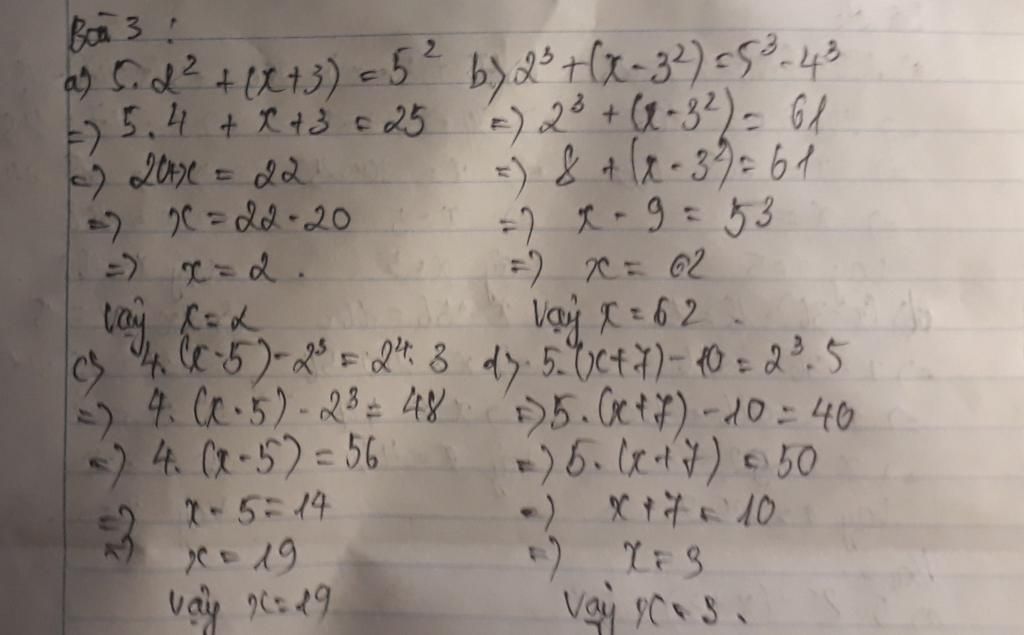 Bài 3 :
a) 5.2² + (x+3) = 5²
=) 5.4 + x+3 = 25
=) 20+x = 22
=) x = 22-20
=) x = 2.
Vậy x=2
b) 2³+(x-3²)=5³-4³
=) 2³ + (x-3²) = 61
=) 8 + (x-3²)=61
=) x - 9 = 53
=) x = 62
Vậy x=62.
c) 4.(x-5)-2³ = 2⁴.3
=) 4.(x-5) - 2³ = 48
=) 4.(x-5) = 56
=) x-5=14
=) x=19
Vậy x=19
d) 5.(x+7)-10=2³.5
=) 5.(x+7)-10=40
=) 5.(x+7) = 50
=) x+7=10
=) x=3
Vậy x=3.